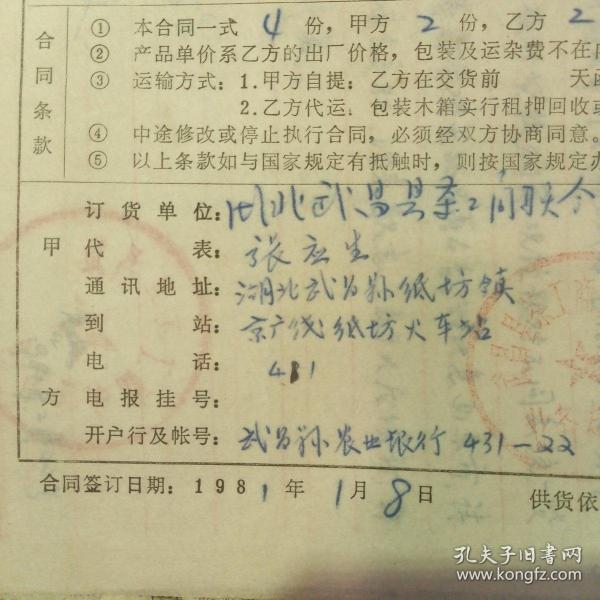 合同条款
① 本合同一式 4 份，甲方 2 份，乙方 2
② 产品单价系乙方的出厂价格，包装及运杂费不在
③ 运输方式：1.甲方自提：乙方在交货前 天
2.乙方代运：包装木箱实行租押回收或
④ 中途修改或停止执行合同，必须经双方协商同意。
⑤ 以上条款如与国家规定有抵触时，则按国家规定
甲方
订货单位：湖北武昌县茶工商联合
代表：张应生
通讯地址：湖北武昌县纸坊镇
到站：京广线纸坊火车站
电话：431
电报挂号：
开户行及帐号：武昌县农业银行 431—22
合同签订日期：1981年1月8日 供货依
孔夫子旧书网
www.kongfz.com